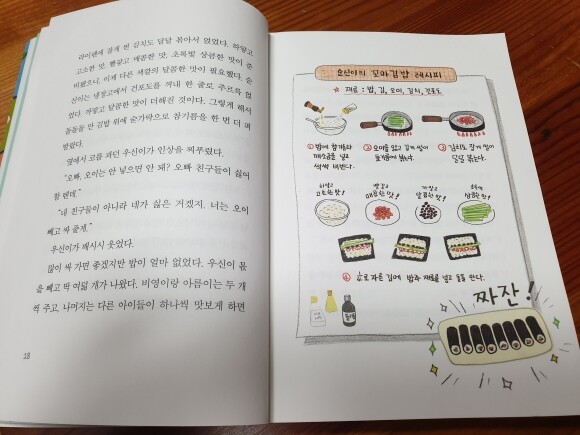 라이팬에 잘게 썬 김치도 달달 볶아서 얹었다. 하얗고
고소한 맛, 빨갛고 매콤한 맛, 초록빛 상큼한 맛이 준
비됐으니, 이제 다른 색깔의 달콤한 맛이 필요했다. 순
신이는 냉장고에서 건포도를 꺼내 한 줄로 주르륵 얹
었다. 까맣고 달콤한 맛이 더해진 것이다. 그렇게 해서
돌돌돌 만 김밥 위에 숟가락으로 참기름을 한 번 더 펴
발랐다.
옆에서 코를 파던 우신이가 인상을 찌푸렸다.
"오빠, 오이는 안 넣으면 안 돼? 오빠 친구들이 싫어
할 텐데."
"내 친구들이 아니라 네가 싫은 거겠지. 너는 오이
빼고 싸 줄게."
우신이가 배시시 웃었다.
많이 싸 가면 좋겠지만 밥이 얼마 없었다. 우신이 몫
을 빼고 딱 여덟 개가 나왔다. 비영이랑 아름이는 두 개
씩 주고, 나머지는 다른 아이들이 하나씩 맛보게 하면
18
순신이의 꼬마김밥 레시피
재료 : 밥, 김, 오이, 김치, 건포도
① 밥에 참기름과
깨소금을 넣고
석석 비빈다.
② 오이를 얇고 길게 썰어
들기름에 볶는다.
③ 김치도 잘게 썰어
달달 볶는다.
하얗고
고소한 맛!
빨갛고
매콤한 맛!
까맣고
달콤한 맛!
초록색
상큼한 맛!
④ 로 자른 김에 밥과 재료를 넣고 돌돌 만다.
짜잔!